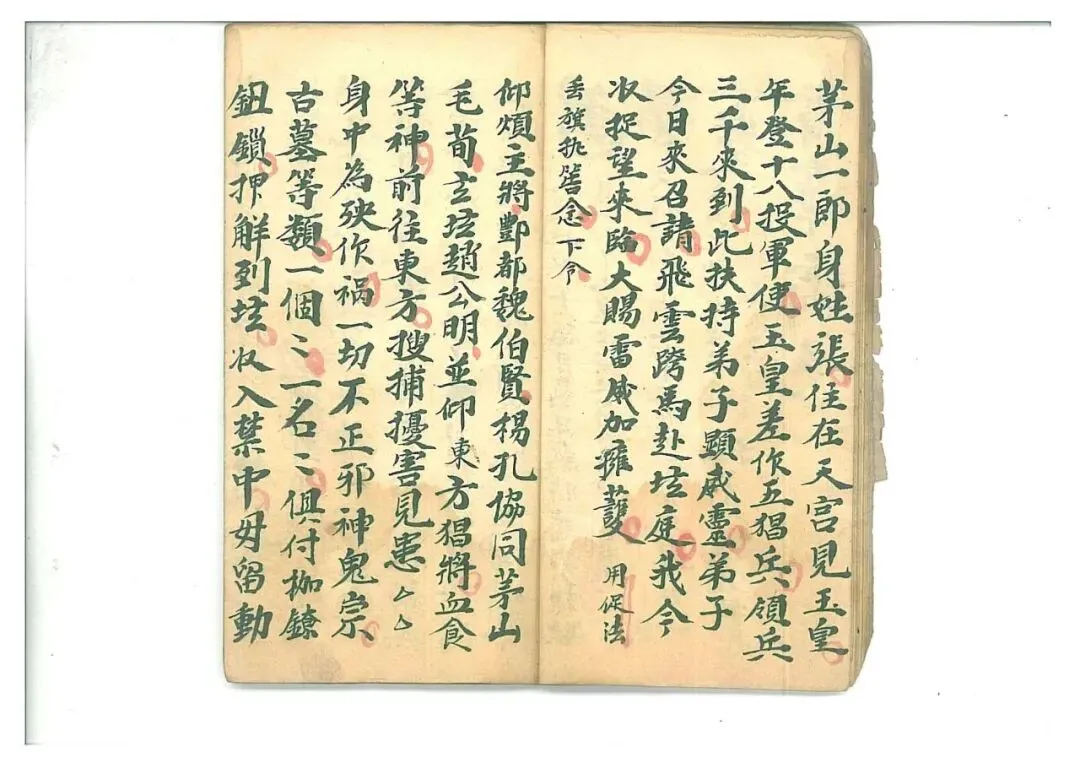 茅山一郎身姓張住在天宫見玉皇
年登十八投軍便玉皇差作五猖兵領兵
三千來到此扶持弟子顯威靈弟子
今日來召請飛雲跨馬赴坛庭我今
收捉望來臨大賜雷威加擁護 用促法
丢旗扎筶念下令
仰煩主將酆都魏伯賢楊孔協同茅山
毛荀主坛趙公明並仰東方猖將血食
等神前往東方搜捕擾害見患厶厶
身中為殃作禍一切不正邪神鬼宗
古墓等類一個〻一名〻俱付枷鐐
鈕鎖押解到坛收入禁中毋留動